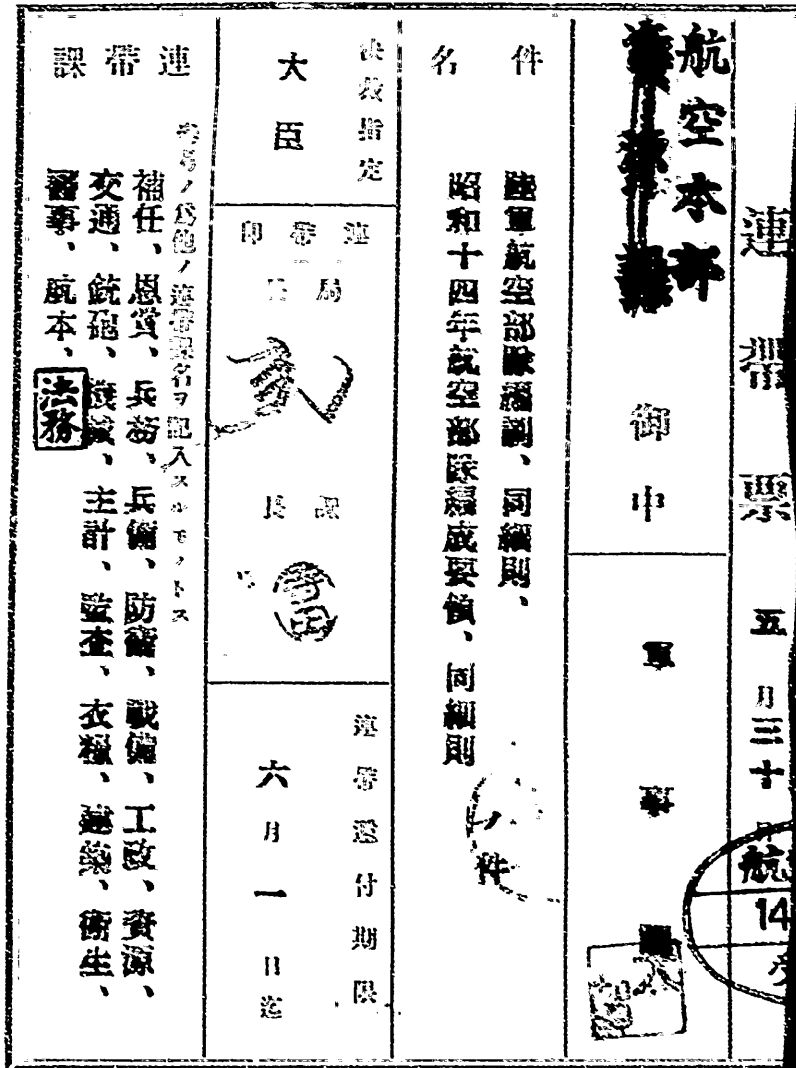 連帯票
五月三十日
航空本部
御中
軍事課
件名
陸軍航空部隊編制、同細則、
昭和十四年航空部隊編成要領、同細則
ノ件
決裁指定
大臣
連帯印
局長
課長
連帯送付期限
六月一日迄
連帯課
ノ為他ノ連帯課名ヲ記入スルモノトス
補任、恩賞、兵務、兵備、防衛、戦備、工政、資源、
交通、銃砲、機械、主計、監査、衣糧、建築、衛生、
醫事、航本、
法務
航
14